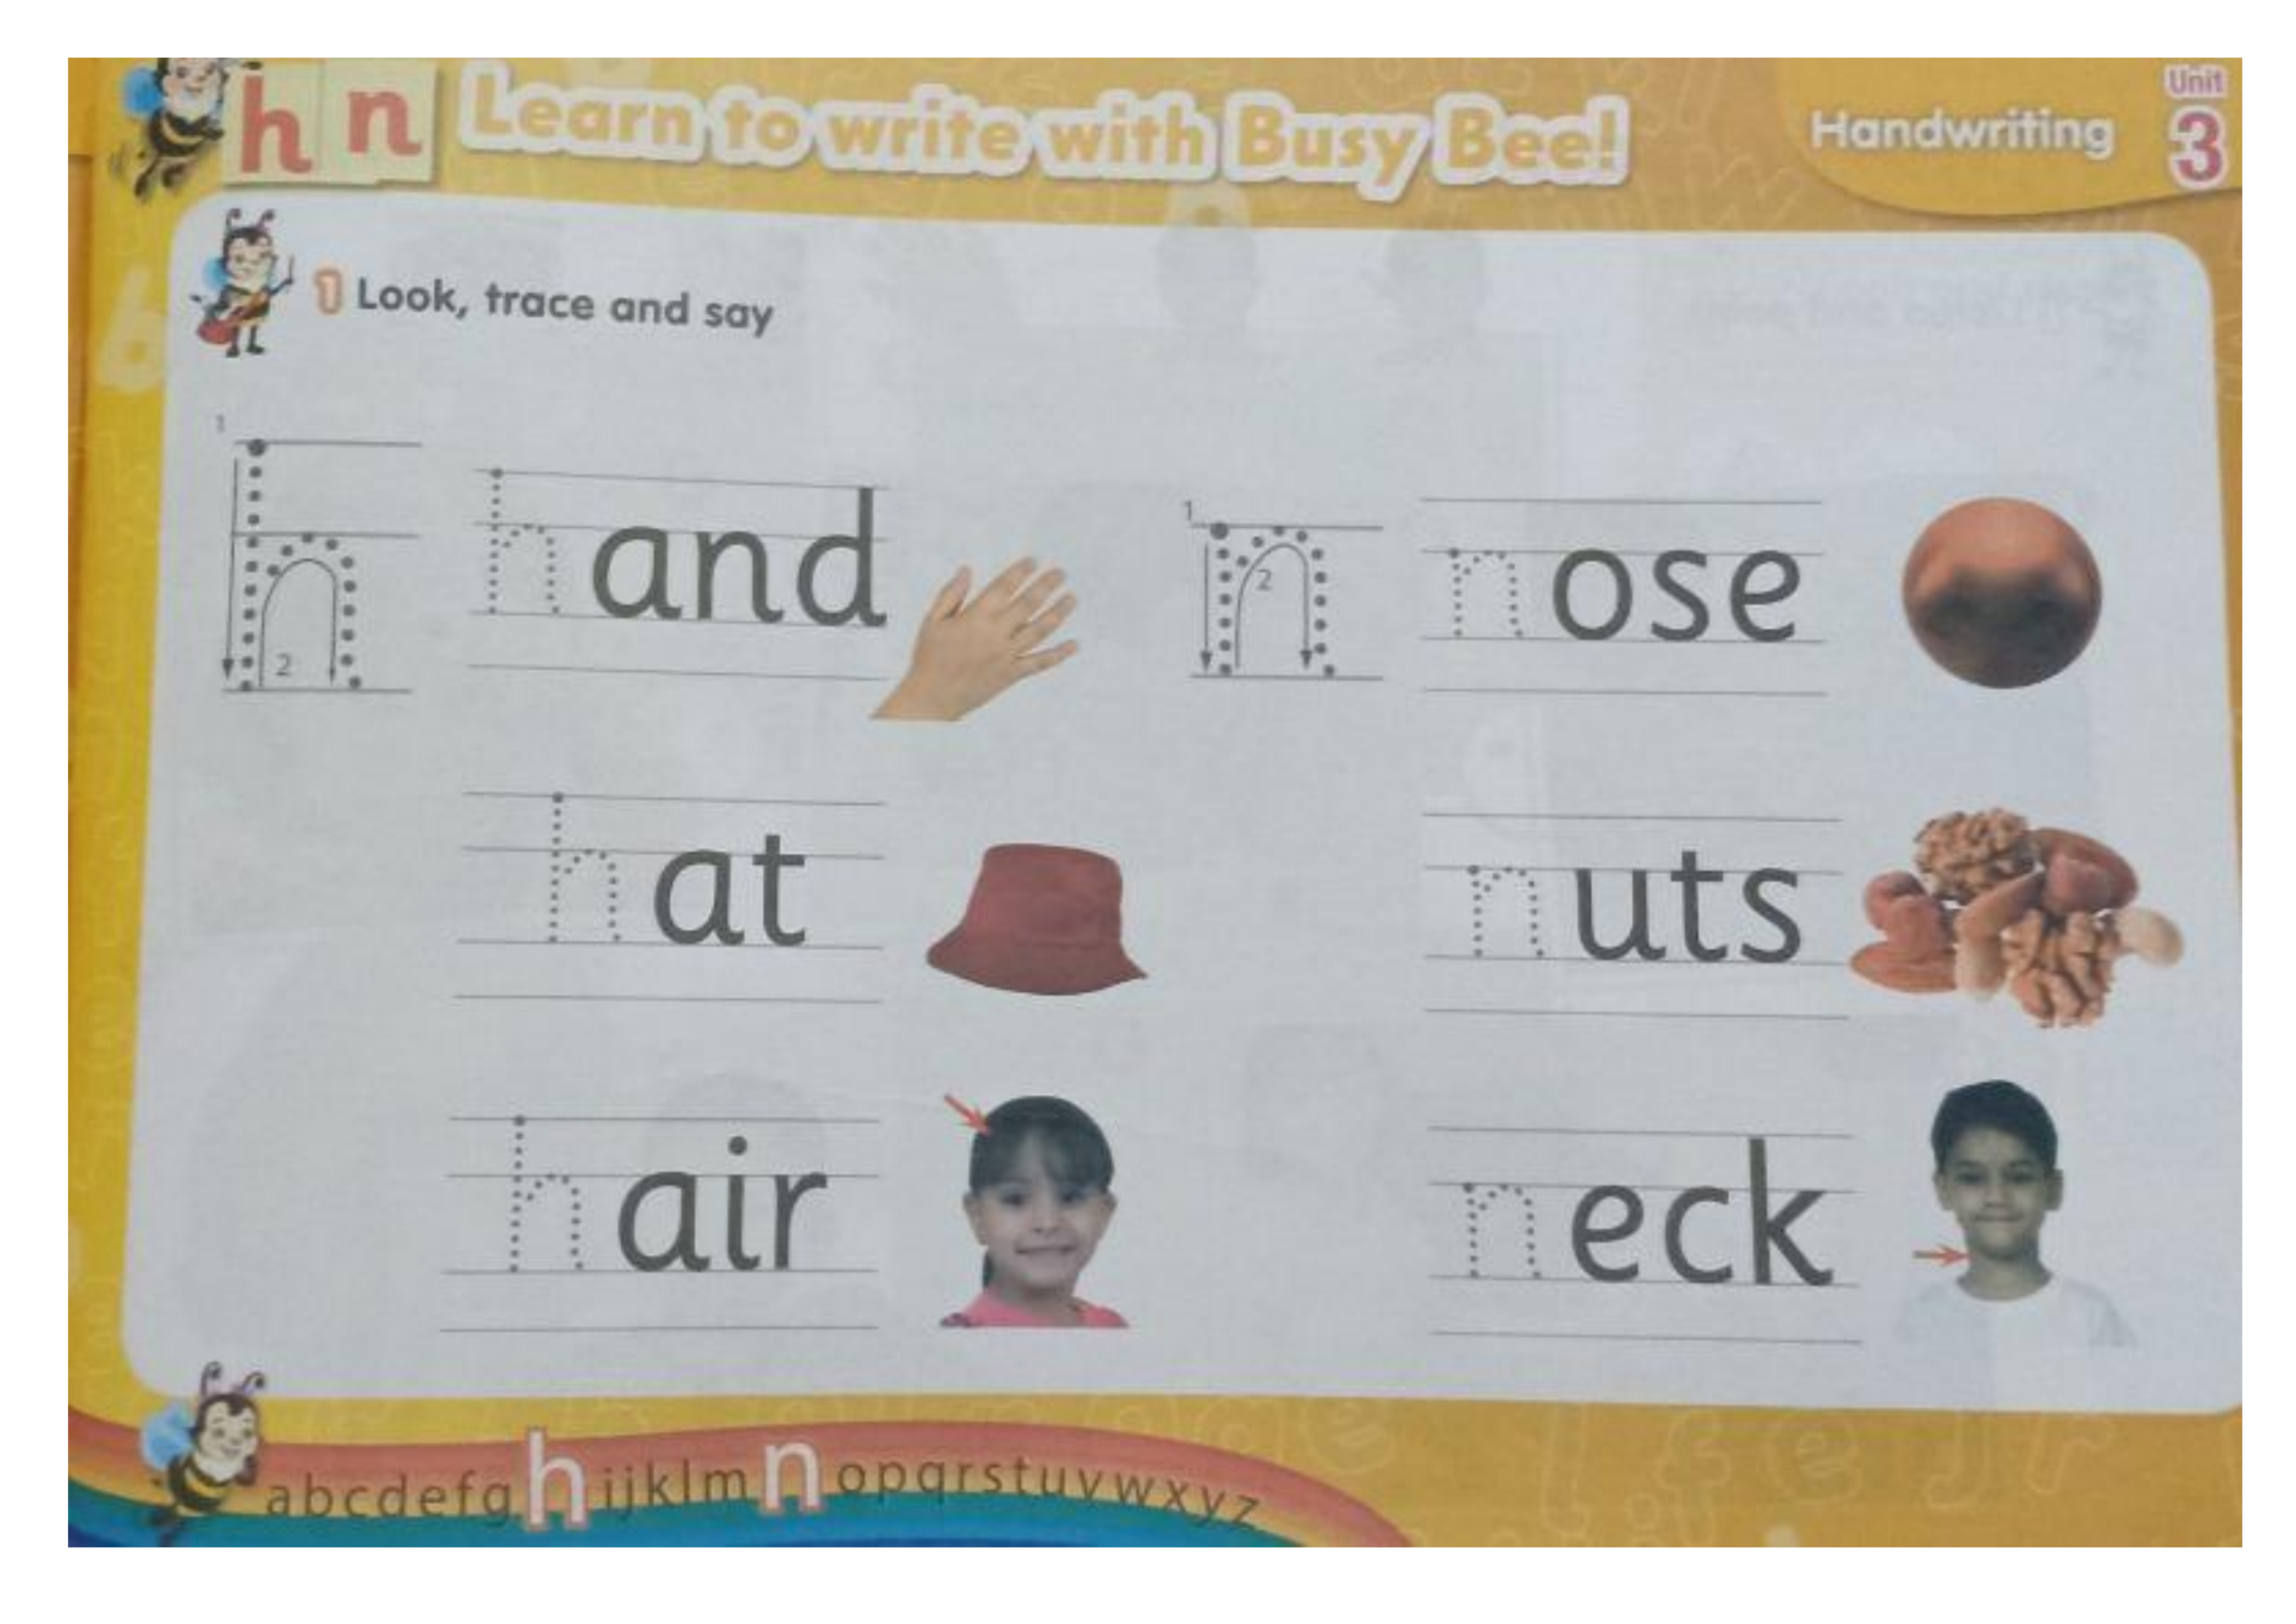 h n Learn to write with Busy Bee! Handwriting Unit 3
1 Look, trace and say
1 2 h hand
1 2 n nose
hat nuts
hair neck
abcdefghijklmnopqrstuvwxyz